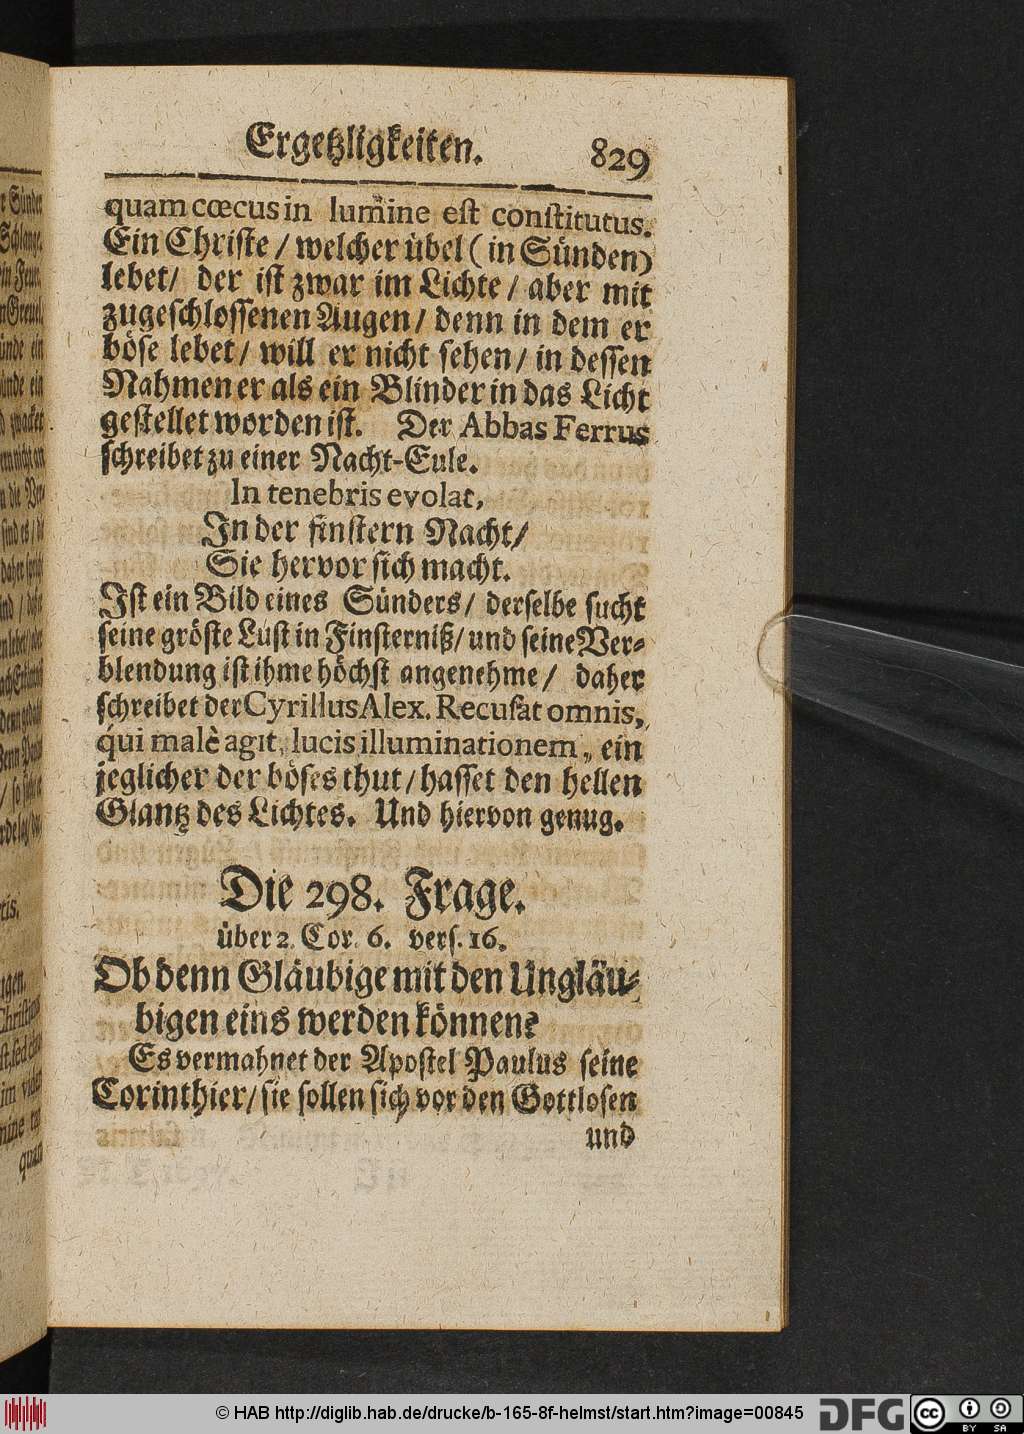 Ergetzligkeiten. 829
quam cœcus in lumine est constitutus.
Ein Christe / welcher übel (in Sünden)
lebet / der ist zwar im Lichte / aber mit
zugeschlossenen Augen / denn in dem er
böse lebet / will er nicht sehen / in dessen
Nahmen er als ein Blinder in das Licht
gestellet worden ist. Der Abbas Ferrus
schreibet zu einer Nacht-Eule.
In tenebris evolat,
In der finstern Nacht /
Sie hervor sich macht.
Ist ein Bild eines Sünders / derselbe sucht
seine gröste Lust in Finsterniß / und seine Ver-
blendung ist ihme höchst angenehme / daher
schreibet der Cyrillus Alex. Recusat omnis,
qui malè agit, lucis illuminationem, ein
jeglicher der böses thut / hasset den hellen
Glantz des Lichtes. Und hiervon genug.
Die 298. Frage.
über 2. Cor. 6. vers. 16.
Ob denn Gläubige mit den Ungläu-
bigen eins werden können?
Es vermahnet der Apostel Paulus seine
Corinthier / sie sollen sich vor den Gottlosen
und
© HAB http://diglib.hab.de/drucke/b-165-8f-helmst/start.htm?image=00845
DFG
cc BY SA